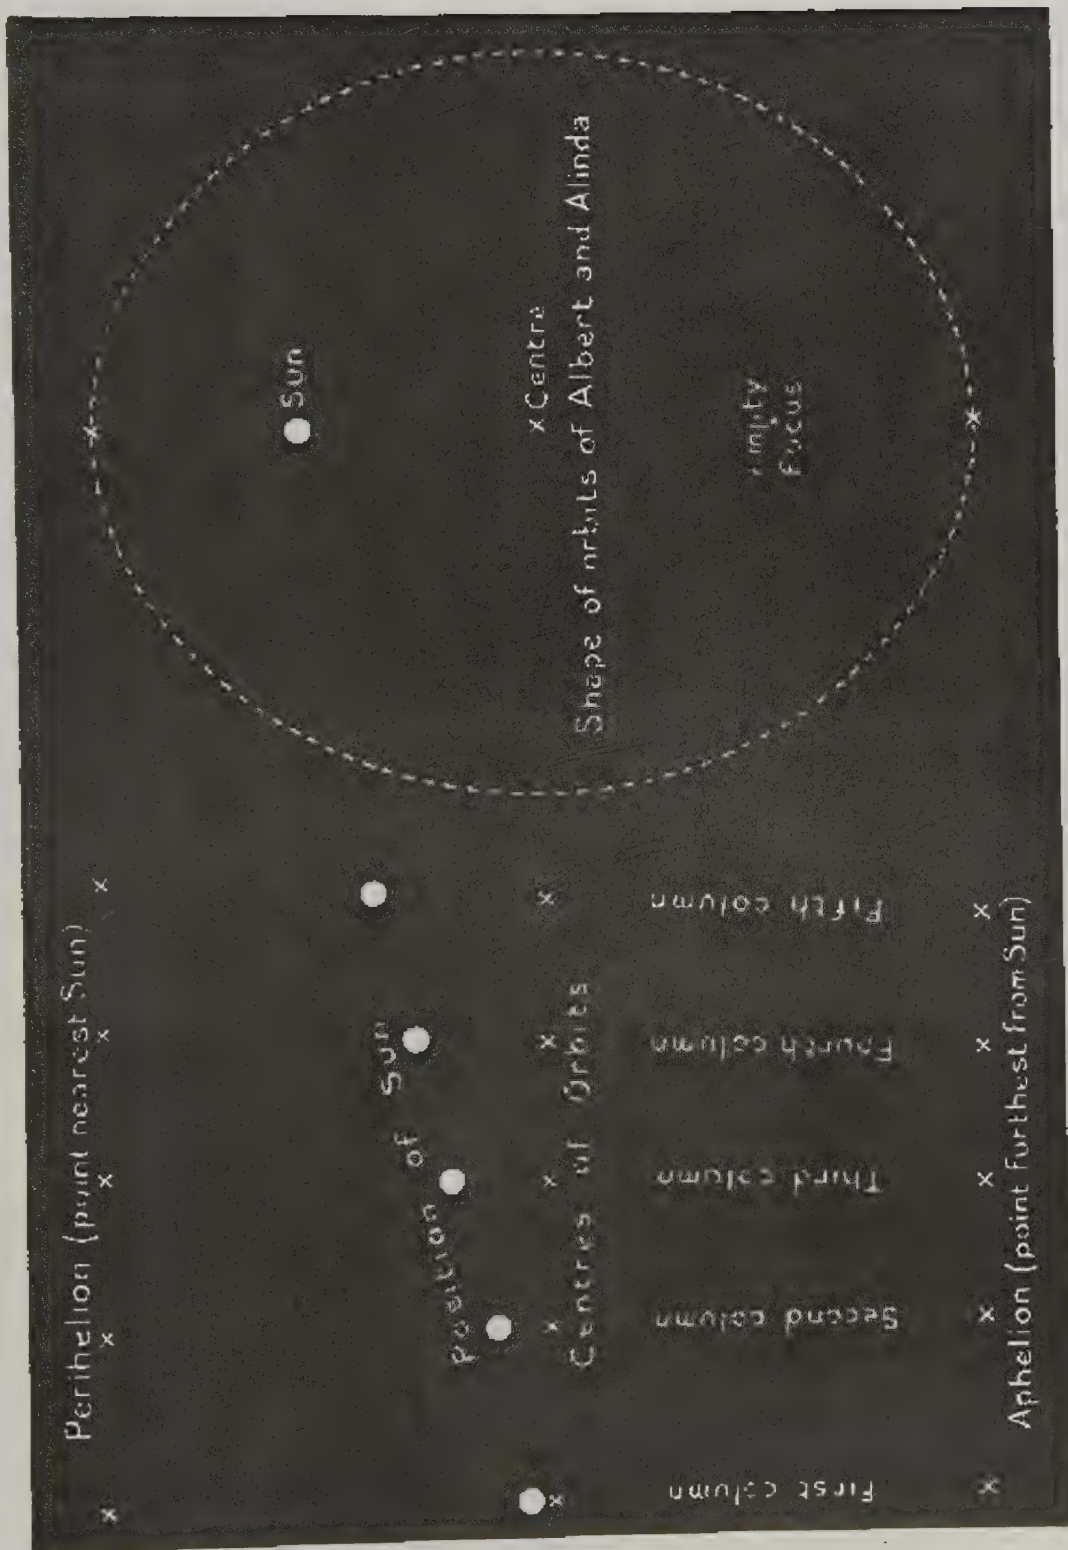 Perihelion (point nearest Sun)
Position of Sun
Centres of Orbits
First column
Second column
Third column
Fourth column
Fifth column
Aphelion (point furthest from Sun)
Sun
Centre
Shape of orbits of Albert and Alinda
Empty
focus